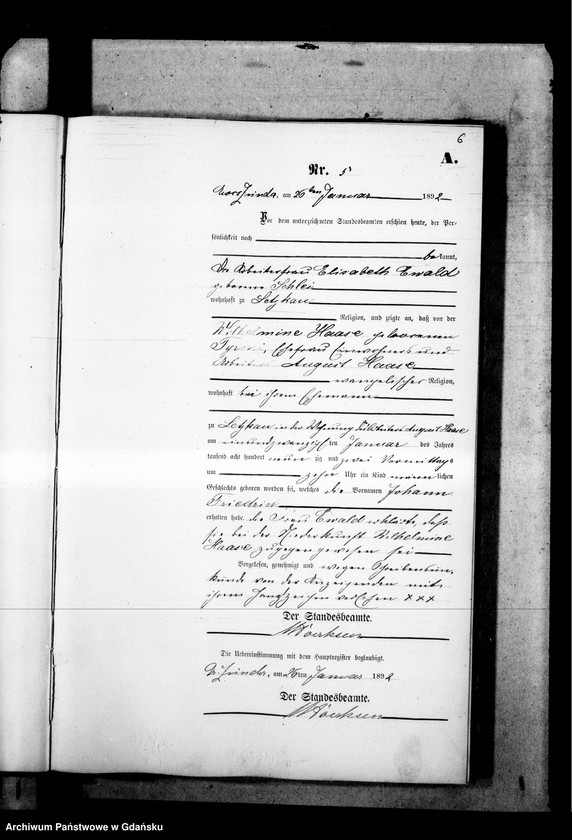 6
A.
Nr. 5
am 26ten Januar 1892
Vor dem unterzeichneten Standesbeamten erschien heute, der Per-
sönlichkeit nach
bekannt,
die Arbeiterfrau Elisabeth Ewald
geborene Schlei
wohnhaft zu Letzkau
Religion, und zeigte an, daß von der
Wilhelmine Haase geborenen
Ehefrau Einwohners und
Arbeiters August Haase
evangelischer Religion,
wohnhaft bei ihrem Ehemann
zu Letzkau in der Wohnung des Arbeiters August Haase
am einundzwanzigsten Januar des Jahres
tausend acht hundert neunzig und zwei Vormittags
um zehn Uhr ein Kind männlichen
Geschlechts geboren worden sei, welches die Vornamen Johann
Friedrich
erhalten habe. die Frau Ewald erklärte, daß
sie bei der Niederkunft der Wilhelmine
Haase zugegen gewesen sei
Vorgelesen, genehmigt und wegen Schreibensun-
kunde von der Anzeigenden mit
ihrem Handzeichen versehen xxx
Der Standesbeamte.
Die Uebereinstimmung mit dem Hauptregister beglaubigt.
am 26ten Januar 1892
Der Standesbeamte.
Archiwum Państwowe w Gdańsku